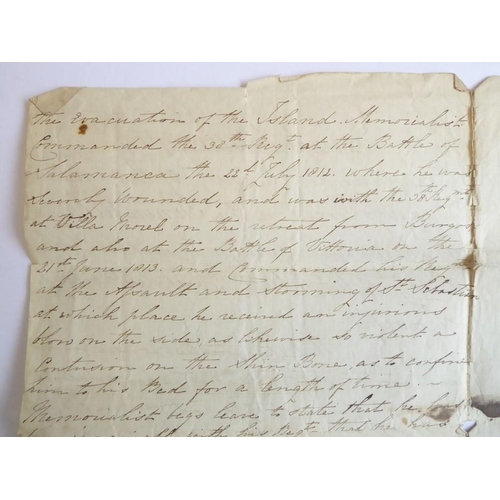 the Evacuation of the Island Memorialist
Commanded the 38th Regt. at the Battle of
Salamanca the 22d July 1812. where he was
Severely Wounded, and was with the 38th Regmt
at Villa Morel on the retreat from Burgos
and also at the Battle of Vittoria on the
21st June 1813. and Commanded his Reg
at the Assault and Storming of St. Sebastian
at which place he received an injurious
blow on the side, as likewise so violent a
Contusion on the Shin Bone, as to confine
him to his Bed for a length of time.
Memorialist begs leave to state that he has
with his Regt. that he has